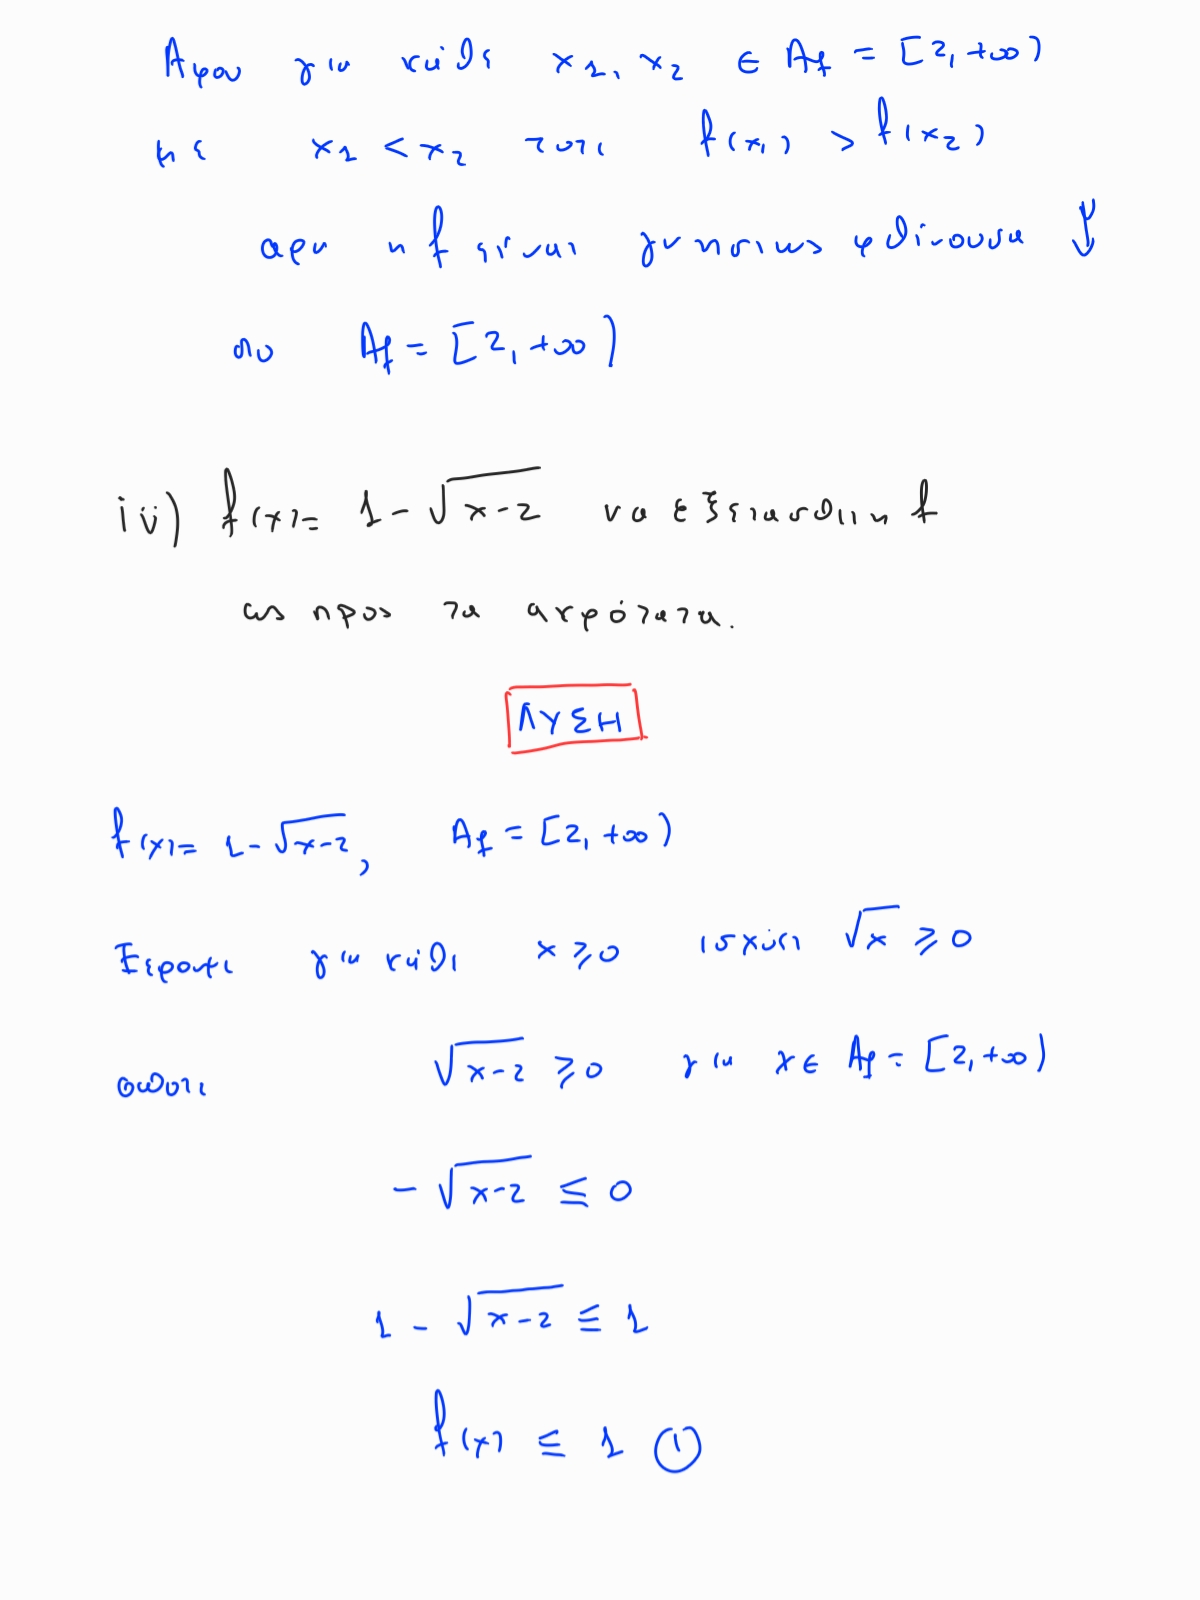 Αφου για καθε x₁, x₂ ∈ A_f = [2, +∞)
με x₁ < x₂ τοτε f(x₁) > f(x₂)
αρα η f είναι γνησιως φθίνουσα ↓
στο A_f = [2, +∞)
iv) f(x) = 1 - √(x-2) να εξεταστει η f
ως προς τα ακρότατα.
ΛΥΣΗ
f(x) = 1 - √(x-2), A_f = [2, +∞)
Ξερουμε για κάθε x ≥ 0 ισχύει √x ≥ 0
οποτε √(x-2) ≥ 0 για x ∈ A_f = [2, +∞)
- √(x-2) ≤ 0
1 - √(x-2) ≤ 1
f(x) ≤ 1 ①